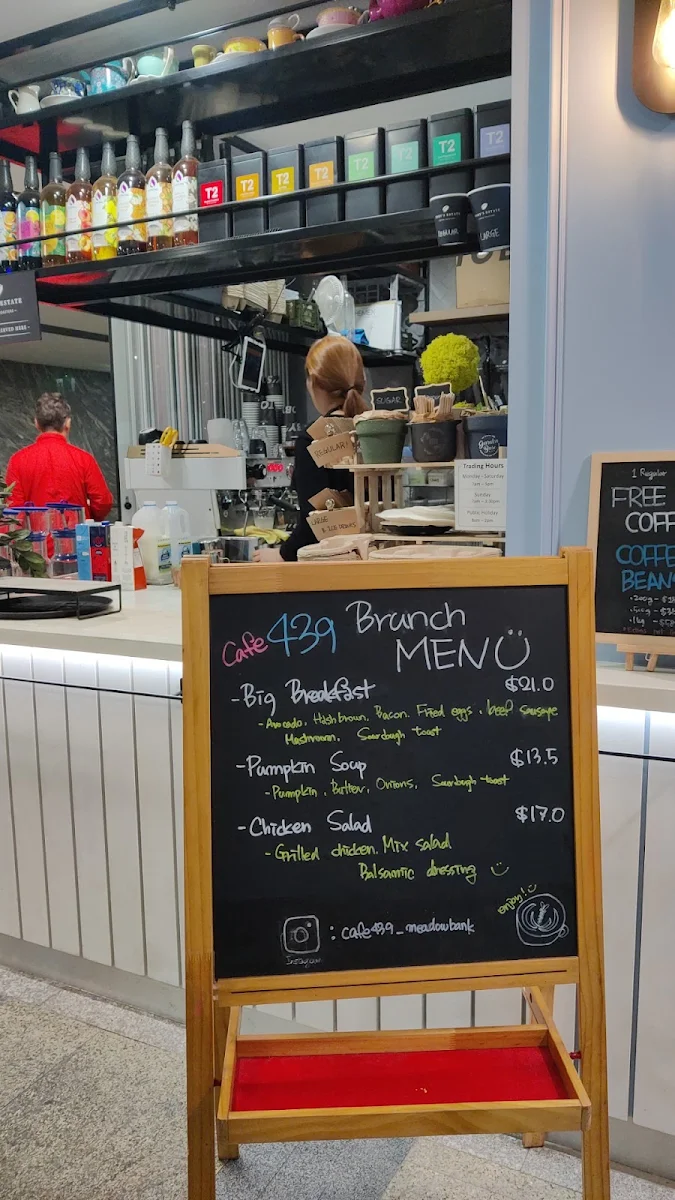 T2
T2
T2
T2
T2
T2
T2
T2
LARGE
ESTATE
SUGAR
REGULAR
Trading Hours
Monday - Saturday
Sunday
Public Holiday
1 Regular
FREE
COFF
COFFE
BEANS
Café 439 Brunch
MENU
- Big Breakfast $21.0
- Avocado, Hashbrown, Bacon, Fried eggs, beef sausage
Mashroom, Sourdough toast
- Pumpkin Soup $13.5
- Pumpkin, Butter, Onions, Sourdough toast
- Chicken Salad $17.0
- Grilled chicken, Mix salad
Balsamic dressing
enjoy!
: cafe439_meadowbank
Instagram